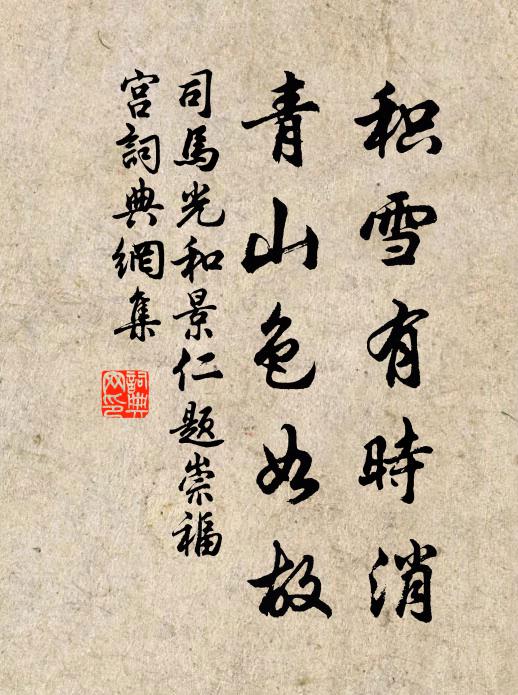 积雪有時消
青山色如故
司馬光和景仁题崇福
宫詞典網集
詞典网印